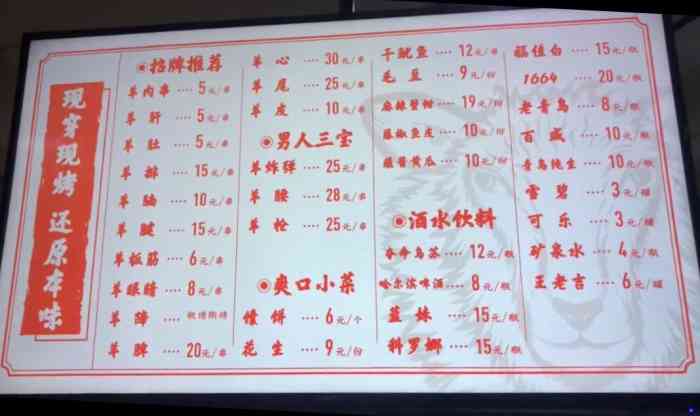 现穿现烤 还原本味
招牌推荐
羊肉串 ···· 5元/串
羊肝 ···· 5元/串
羊肚 ···· 5元/串
羊排 ···· 15元/串
羊脑 ···· 10元/串
羊腱 ···· 15元/串
羊板筋 ···· 6元/串
羊眼睛 ···· 8元/串
羊蹄 ····
羊脾 ···· 20元/串
羊心 ···· 30元/串
羊尾 ···· 25元/串
羊皮 ···· 10元/串
男人三宝
羊炸弹 ···· 25元/串
羊腰 ···· 28元/串
羊枪 ···· 25元/串
爽口小菜
馕饼 ···· 6元/个
花生 ···· 9元/份
干鱿鱼 ···· 12元/串
毛豆 ···· 9元/份
麻辣蟹柑 ···· 19元/份
藤椒鱼皮 ···· 10元/份
酸酱黄瓜 ···· 10元/份
酒水饮料
夺命乌苏 ···· 12元/瓶
哈尔滨啤酒 ···· 8元/瓶
蓝妹 ···· 15元/瓶
科罗娜 ···· 15元/瓶
福佳白 ···· 15元/瓶
1664 ···· 20元/瓶
老青岛 ···· 8元/瓶
百威 ···· 10元/瓶
青岛纯生 ···· 10元/瓶
雪碧 ···· 3元/罐
可乐 ···· 3元/罐
矿泉水 ···· 4元/瓶
王老吉 ···· 6元/罐